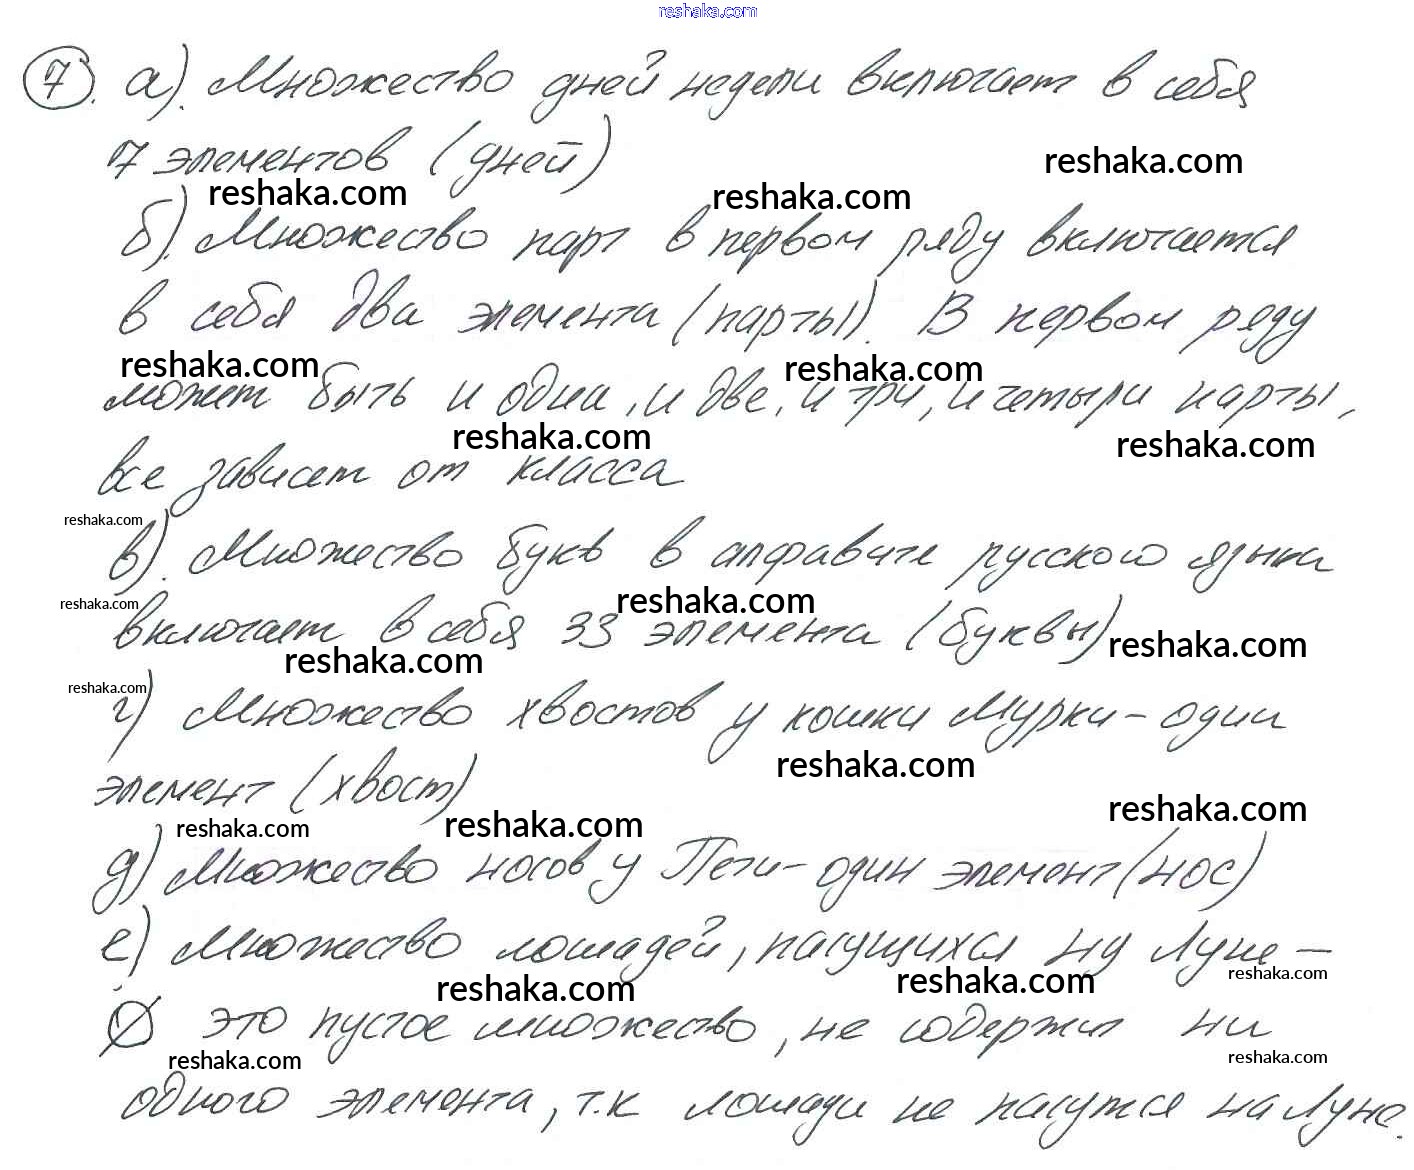 reshaka.com
7. а). Множество дней недели включает в себя
7 элементов (дней)
reshaka.com
reshaka.com reshaka.com
б). Множество парт в первом ряду включается
в себя два элемента (парты). В первом ряду
reshaka.com reshaka.com
может быть и одна, и две, и три, и четыри парты,
reshaka.com reshaka.com
все зависет от класса
reshaka.com
в). Множество букв в алфавите русского языка
reshaka.com reshaka.com
включает в себя 33 элемента (буквы)
reshaka.com reshaka.com
reshaka.com
г) Множество хвостов у кошки Мурки – один
reshaka.com
элемент (хвост)
reshaka.com
reshaka.com reshaka.com
д) Множество носов у Пети – один элемент (нос)
е) Множество лошадей, пасущихся ну Луне –
reshaka.com reshaka.com reshaka.com
∅ это пустое множество, не содержит ни
reshaka.com reshaka.com
одного элемента, т.к лошади не пасутся на Луне.